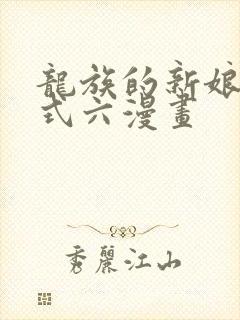 龍族的新娘
式六漫畫
秀麗江山